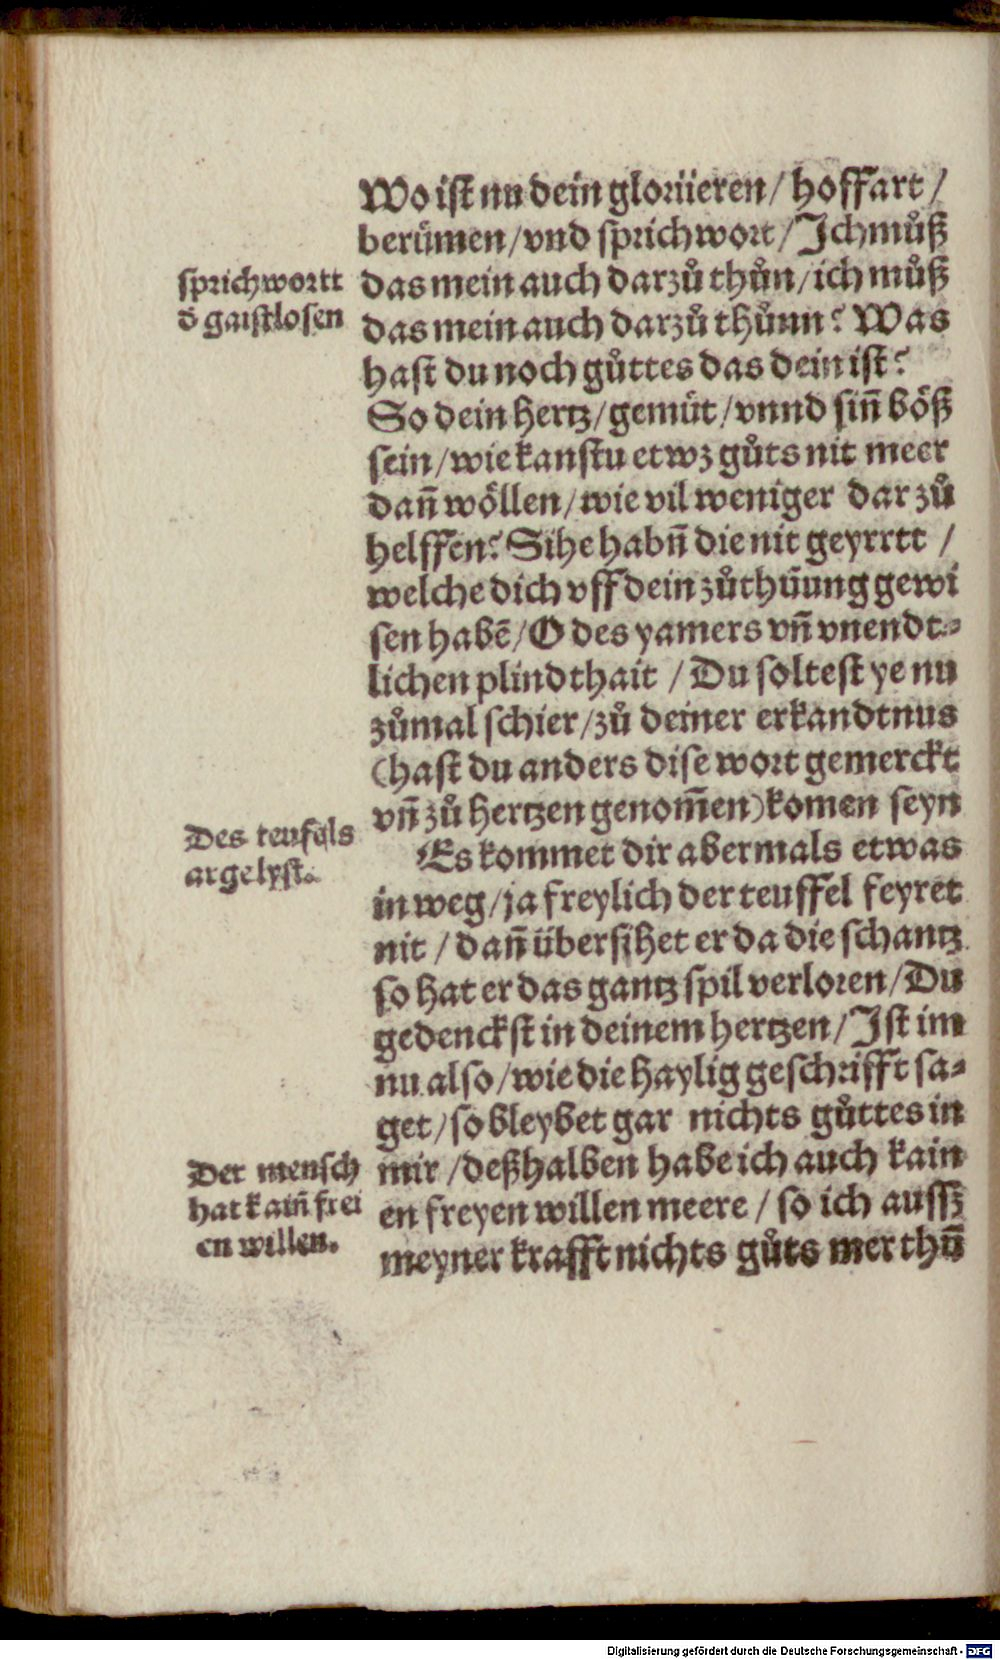 Wo ist nu dein gloriieren / hoffart /
berümen / vnd sprichwort / Ich můß
sprichwortt
d̄ gaistlosen
das mein auch darzů thůn / ich můß
das mein auch darzů thůnn? Was
hast du noch gůttes das dein ist?
So dein hertz / gemüt / vnnd siñ böß
sein / wie kanstu etwz gůts nit meer
dañ wöllen / wie vil weniger dar zů
helffen? Sihe habñ die nit geyrrtt /
welche dich vff dein zůthůung gewi
sen habē / O des yamers vñ vnendt⸗
lichen plindthait / Du soltest ye nu
zůmal schier / zů deiner erkandtnus
(hast du anders dise wort gemerckt
vñ zů hertzen genom̃en) komen seyn
Des teufels
arge lyst.
Es kommet dir abermals etwas
in weg / ja freylich der teuffel feyret
nit / dañ übersihet er da die schantz
so hat er das gantz spil verloren / Du
gedenckst in deinem hertzen / Ist im
nu also / wie die haylig geschrifft sa⸗
get / so bleybet gar nichts gůttes in
Der mensch
hat kaiñ frei
en willen.
mir / deßhalben habe ich auch kain
en freyen willen meere / so ich aussz
meyner krafft nichts gůts mer thū
Digitalisierung gefördert durch die Deutsche Forschungsgemeinschaft - DFG